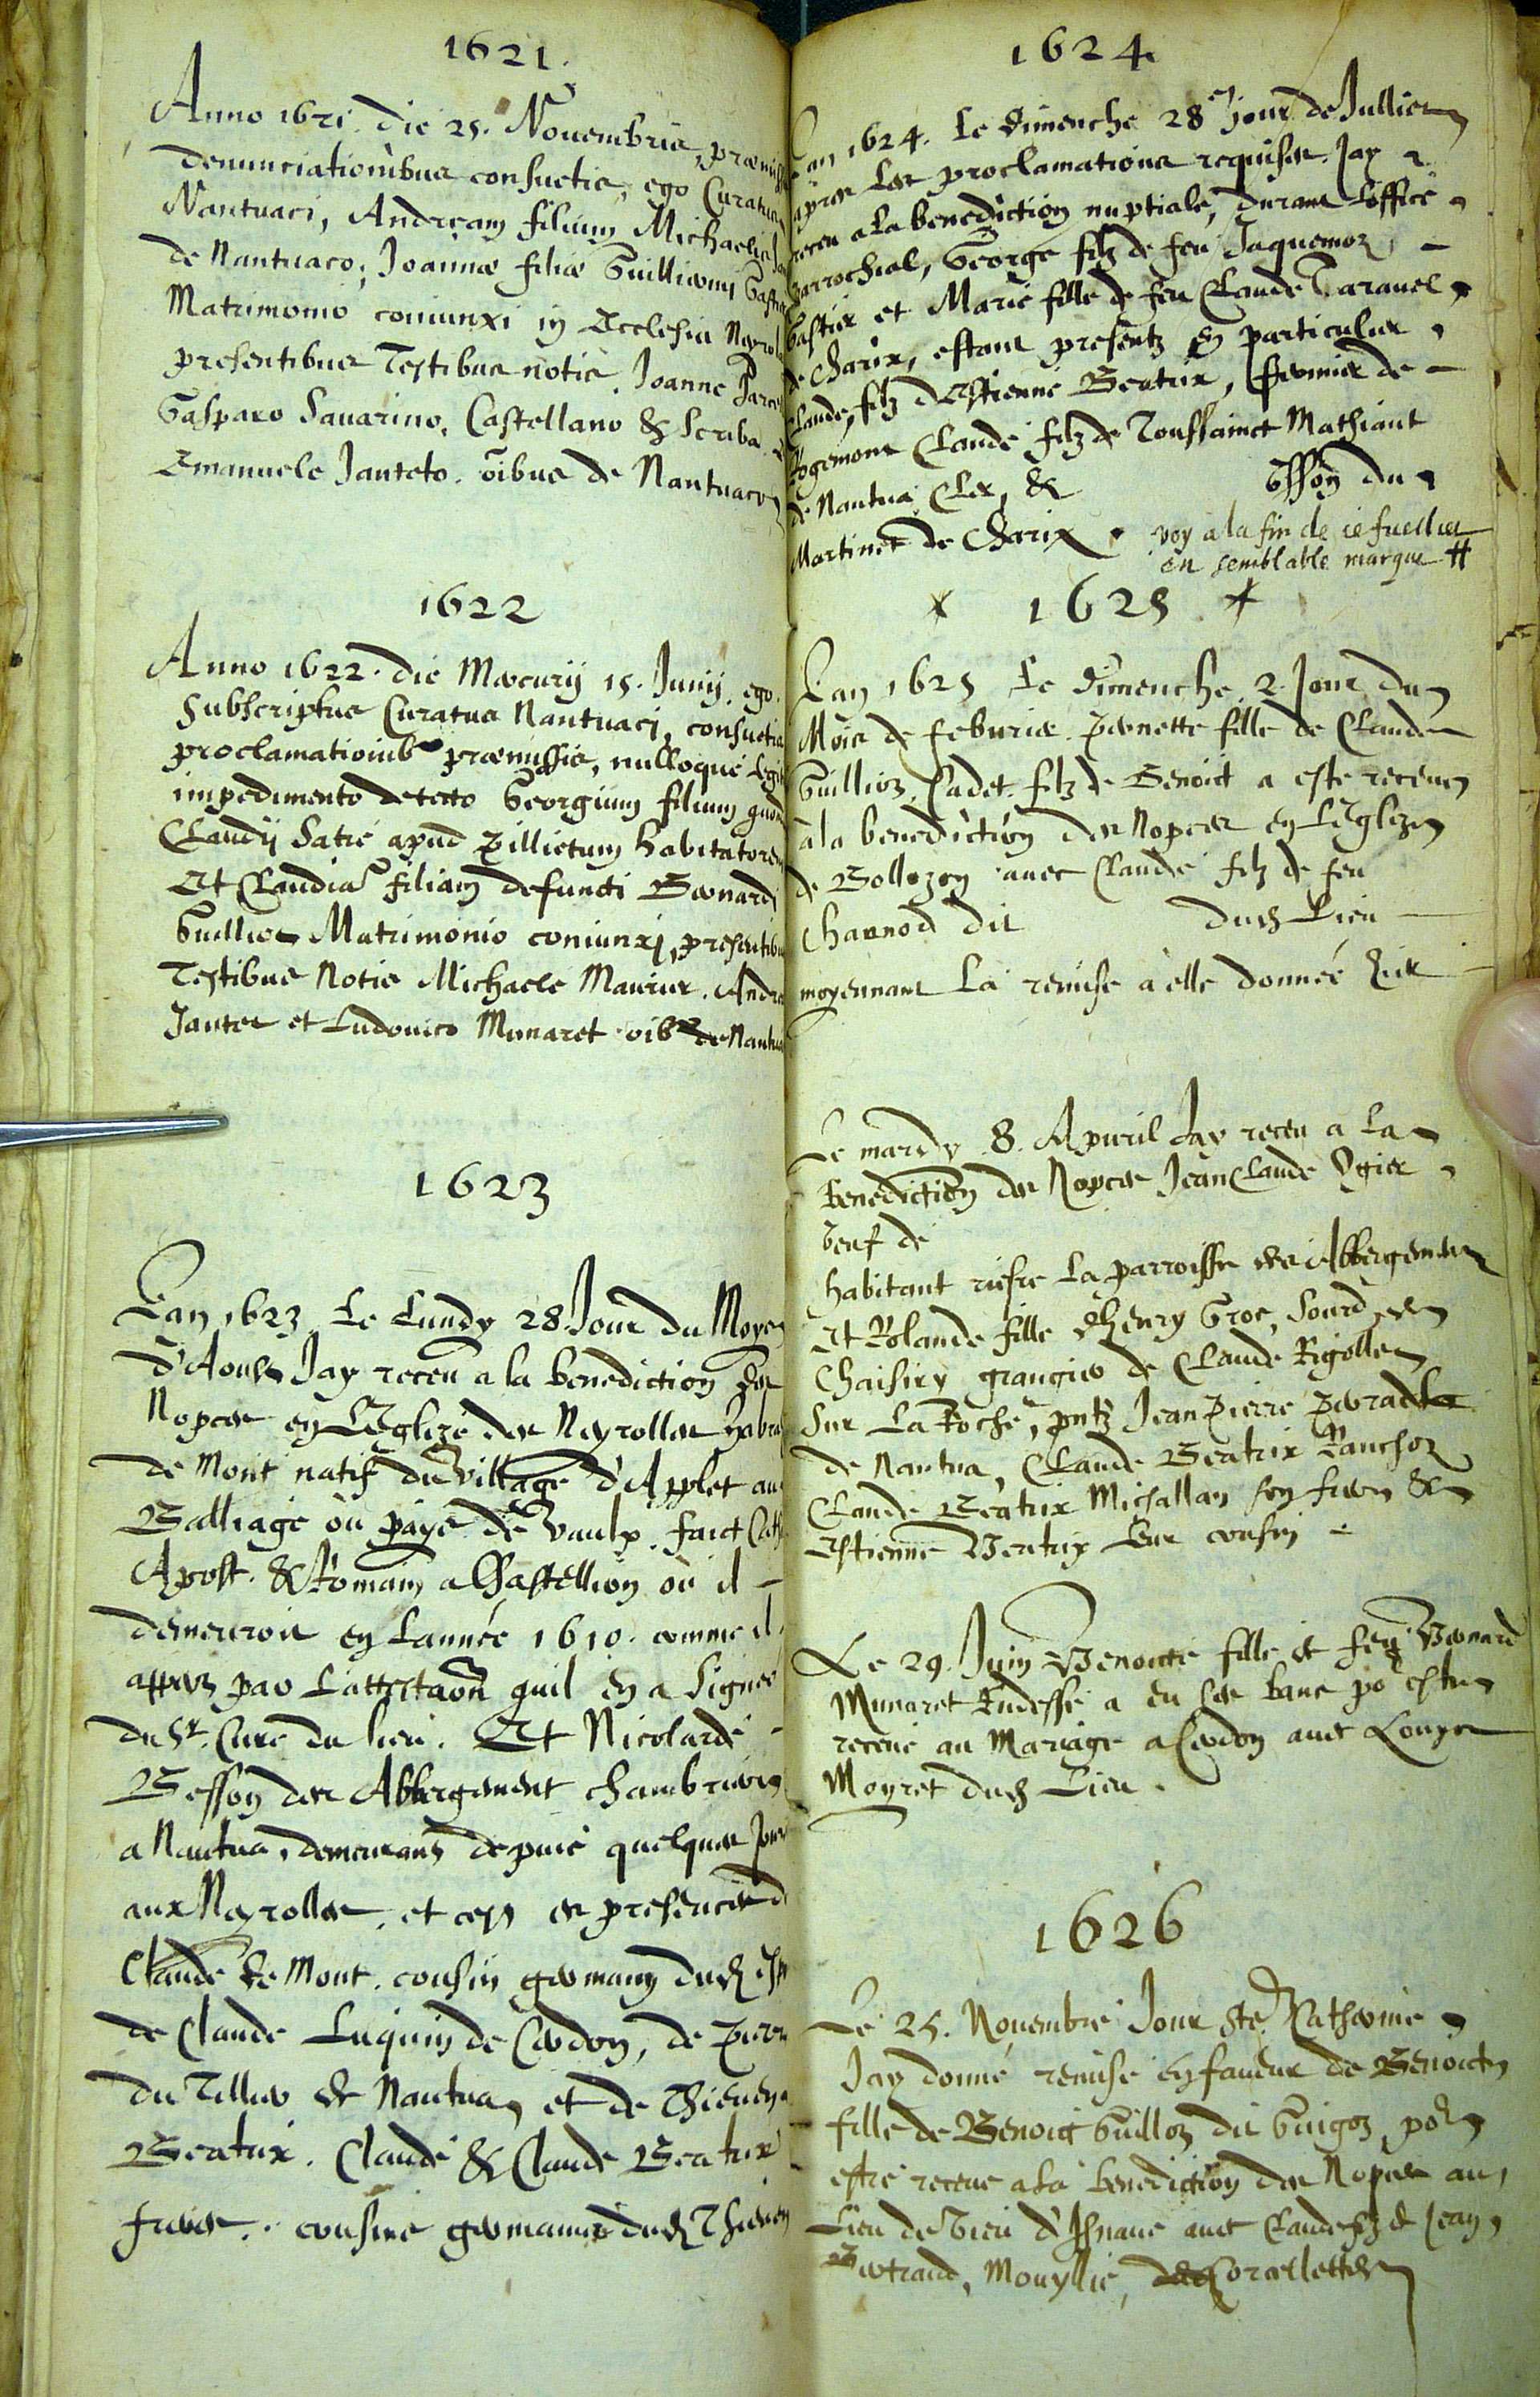 1621.
Anno 1621. die 25. Nouembris, præmiss
denunciationibus consuetis, ego Curatus
Nantuaci, Andream filium Michaelis
de Nantuaco, Joannæ filiæ Guillielmi
Matrimonio coniunxi in Ecclesia Neyrol
presentibus Testibus notis. Joanne
Gasparo Sauarino, Castellano & Scriba
Emanuele Janteto. oibus de Nantuaco
1622
Anno 1622. die Mercurij 15. Junij. ego
subscriptus Curatus Nantuaci, consuetis
proclamationib9 præmissis, nulloque legit
impedimento detecto Georgium filium quon
Claudij Satie apud Pillietum habitatorem
Et Claudiã filiam defuncti Bernardi
Guillion Matrimonio coniunxi, presentibus
Testibus Notis Michaele Maurier. Andre
Jantet et Ludouico Munaret oib9 de Nantua
1623
Lan 1623. Le Lundy 28 Jour du Moys
d'Aoust Jay receu a la benediction des
Nopces en L'Eglize des Neyrolles
de Mont natif du village d'Applet au
Balliage ou pays de Vaulx. faict Cath
Apost. & Romain a Chastellion où il
demeuroit en Lannée 1610. comme il
appert par Lattestaon quil en a Signée
du Sr. Curé du lieu. Et Nicolarde
Besson des Abbergement chambriere
a Nantua, demeurant depuis quelques Jours
aux Neyrolles, et ce es presences d
Claude de Mont. cousin germain dud
de Claude Luquin de Cerdon, de Pierre
du Tillier de Nantua, et de Thieuen
Beatrix. Claude & Claude Beatrix
freres. cousins germains dud Thieuen
1624
Lan 1624. Le Dimenche 28e jour de Jullier
apres Les proclamations requises. Jay
receu a La benediction nuptiale, durant Loffice
parrochial, George filz de feu Jaquemoz
Gastier et Marie fille de feu Claude Tarauel
de Charix, estant presentz en particulier
Claude, filz d'Estienne Beatrix, fermier de
Rogemont Claude filz de Toussainct Mathiant
de Nantua Cler, & Besson du
Martinet de Charix. voy a la fin de ce fuellet
en semblable marque #
1625
Lan 1625 Le Dimenche 2. Jour du
Mois de Feburier. Pernette fille de Claude
Guillioz, Cadet filz de Benoict a este receue
a la benediction des Nopces en L'Eglize
de Bollozon auec Claude filz de feu
Charnod dit dud Lieu
moyennant La remise a elle donnée hier
Le mardy 8. Apuril Jay receu a La
benediction des Nopces Jean Claude Ogier
Veuf de
habitant riere La parroisse des Abbergemens
Et Rolande fille d'henry Gros, Sourd
Chaisiry grangier de Claude Rigollet
Sur La Roche, pntz Jean Pierre
de Nantua, Claude Beatrix Panchoz
Claude Beatrix Michallan son frere &
Estienne Beatrix Leur cousin
Le 29. Juin Benoite fille de feu Bernard
Munaret Rudesse a eu ses bans po estre
receue au Mariage a Cerdon auec Louys
Moyret dud Lieu.
1626
Le 25. Nouembre Jour Ste Catherine
Jay donné remise en faueur de Benoicte
fille de Benoict Guilloz dit Guigoz por
estre receue a La benediction des Nopces au
Lieu de Vieu d'Isnaue auec Claude filz de Jean
Bertrand, Mouyllie,